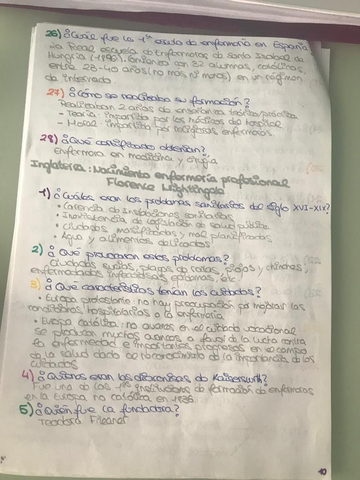 26) ¿Cuál fue la 1ª escuela de enfermería en España?
La Real escuela de Enfermeras de Santa Isabel de
Hungría (1896). Contaba con 32 alumnas, católicas,
entre 23-40 años (no más ni menos) en un régimen
de internado
27) ¿Cómo se realizaba su formación?
Realizaban 2 años de enseñanza teórica/práctica
- Teoría: impartida por los médicos del hospital
- Moral: impartida por religiosas enfermeras.
28) ¿Qué certificado obtenían?
Enfermera en medicina y cirugía
Inglaterra: Nacimiento enfermería profesional
Florence Nightingale
1) ¿Cuáles eran los problemas sanitarios del siglo XVI-XIX?
• Carencia de instalaciones sanitarias
• Inexistencia de legislación de salud pública
• Ciudades masificadas y mal planificadas
• Agua y alimentos delicados
2) ¿Qué provocaron estos problemas?
Ciudades sucias, plagas de ratas, piojos y chinches,
enfermedades infecciosas epidemias
3) ¿Qué características tenían los cuidados?
• Europa protestante: no hay preocupación por mejorar las
condiciones hospitalarias o la enfermería
• Europa católica: no avances en el cuidado vocacional
se producen muchos avances a favor de la lucha contra
la enfermedad e importantes progresos en el campo
de la salud dado el reconocimiento de la importancia de los
cuidados
4) ¿Quiénes eran las diaconisas de Kaiserwerth?
Fue una de las 1ª instituciones de formación de enfermeras
en la Europa no católica en 1836
5) ¿Quién fue la fundadora?
Teodora Fliedner